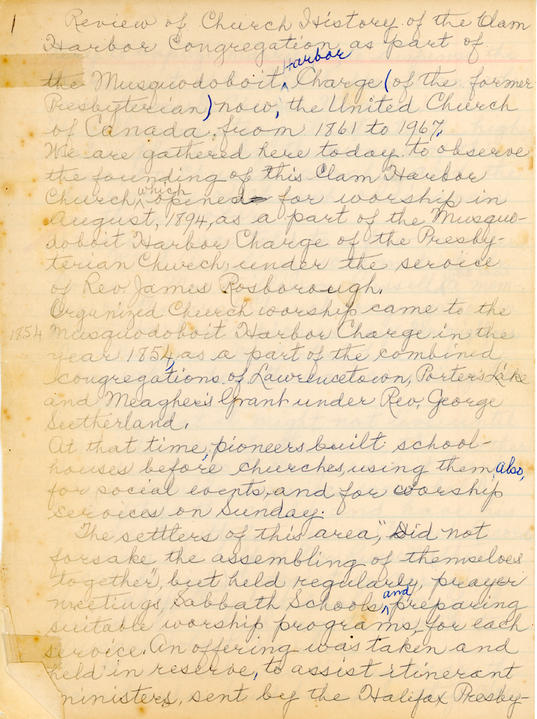 1
Review of Church History of the Clam
Harbor Congregation as part of
the Musquodoboit Harbor Charge (of the former
Presbyterian) now, the United Church
of Canada, from 1861 to 1967.
We are gathered here today to observe
the founding of this Clam Harbor
Church, which opened for worship in
August, 1894, as a part of the Musquo-
doboit Harbor Charge of the Presby-
terian Church, under the service
of Rev. James Rosborough.
Organized Church worship came to the
1854 Musquodoboit Harbor Charge in the
year 1854, as a part of the combined
congregations of Lawrencetown, Porter's Lake
and Meagher's Grant under Rev. George
Sutherland.
At that time, pioneers built school-
houses before churches, using them, also,
for social events, and for worship
services on Sunday.
The settlers of this area, "Did not
forsake the assembling of themselves
together", but held regularly, prayer
meetings, Sabbath Schools, and preparing
suitable worship programs, for each
service. An offering was taken and
held in reserve, to assist itinerant
ministers, sent by the Halifax Presby-